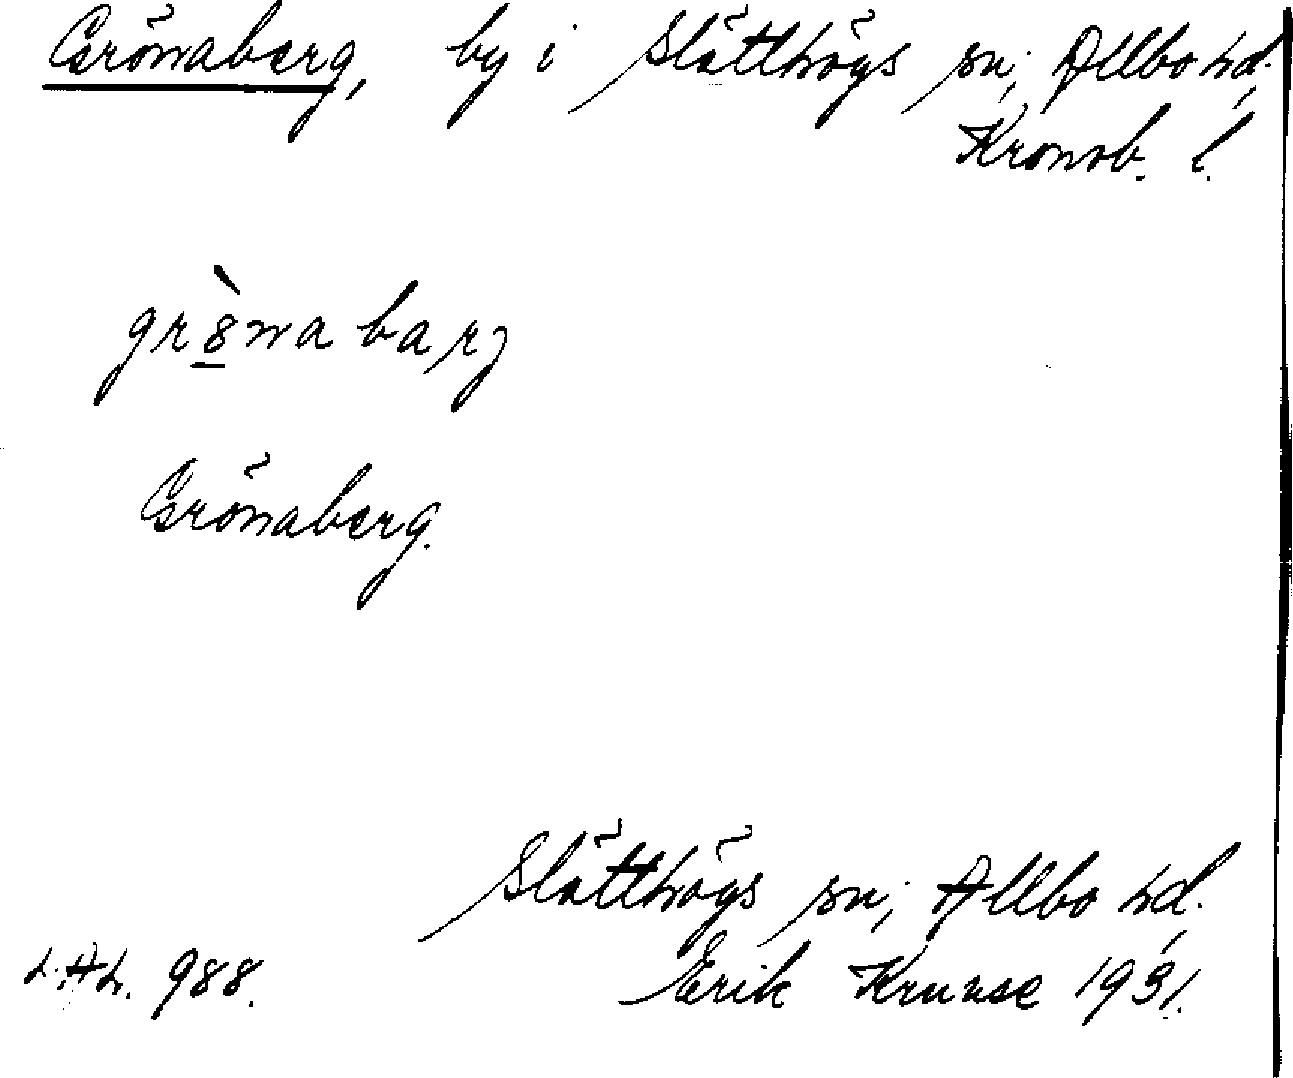 Grönaberg, by i Slätthögs sn; Allbo hd.
Kronob. l.
gr8̱̀nabarg
Grönaberg.
Slätthögs sn; Allbo hd.
L.A.L. 988. Erik Kruuse 1931.